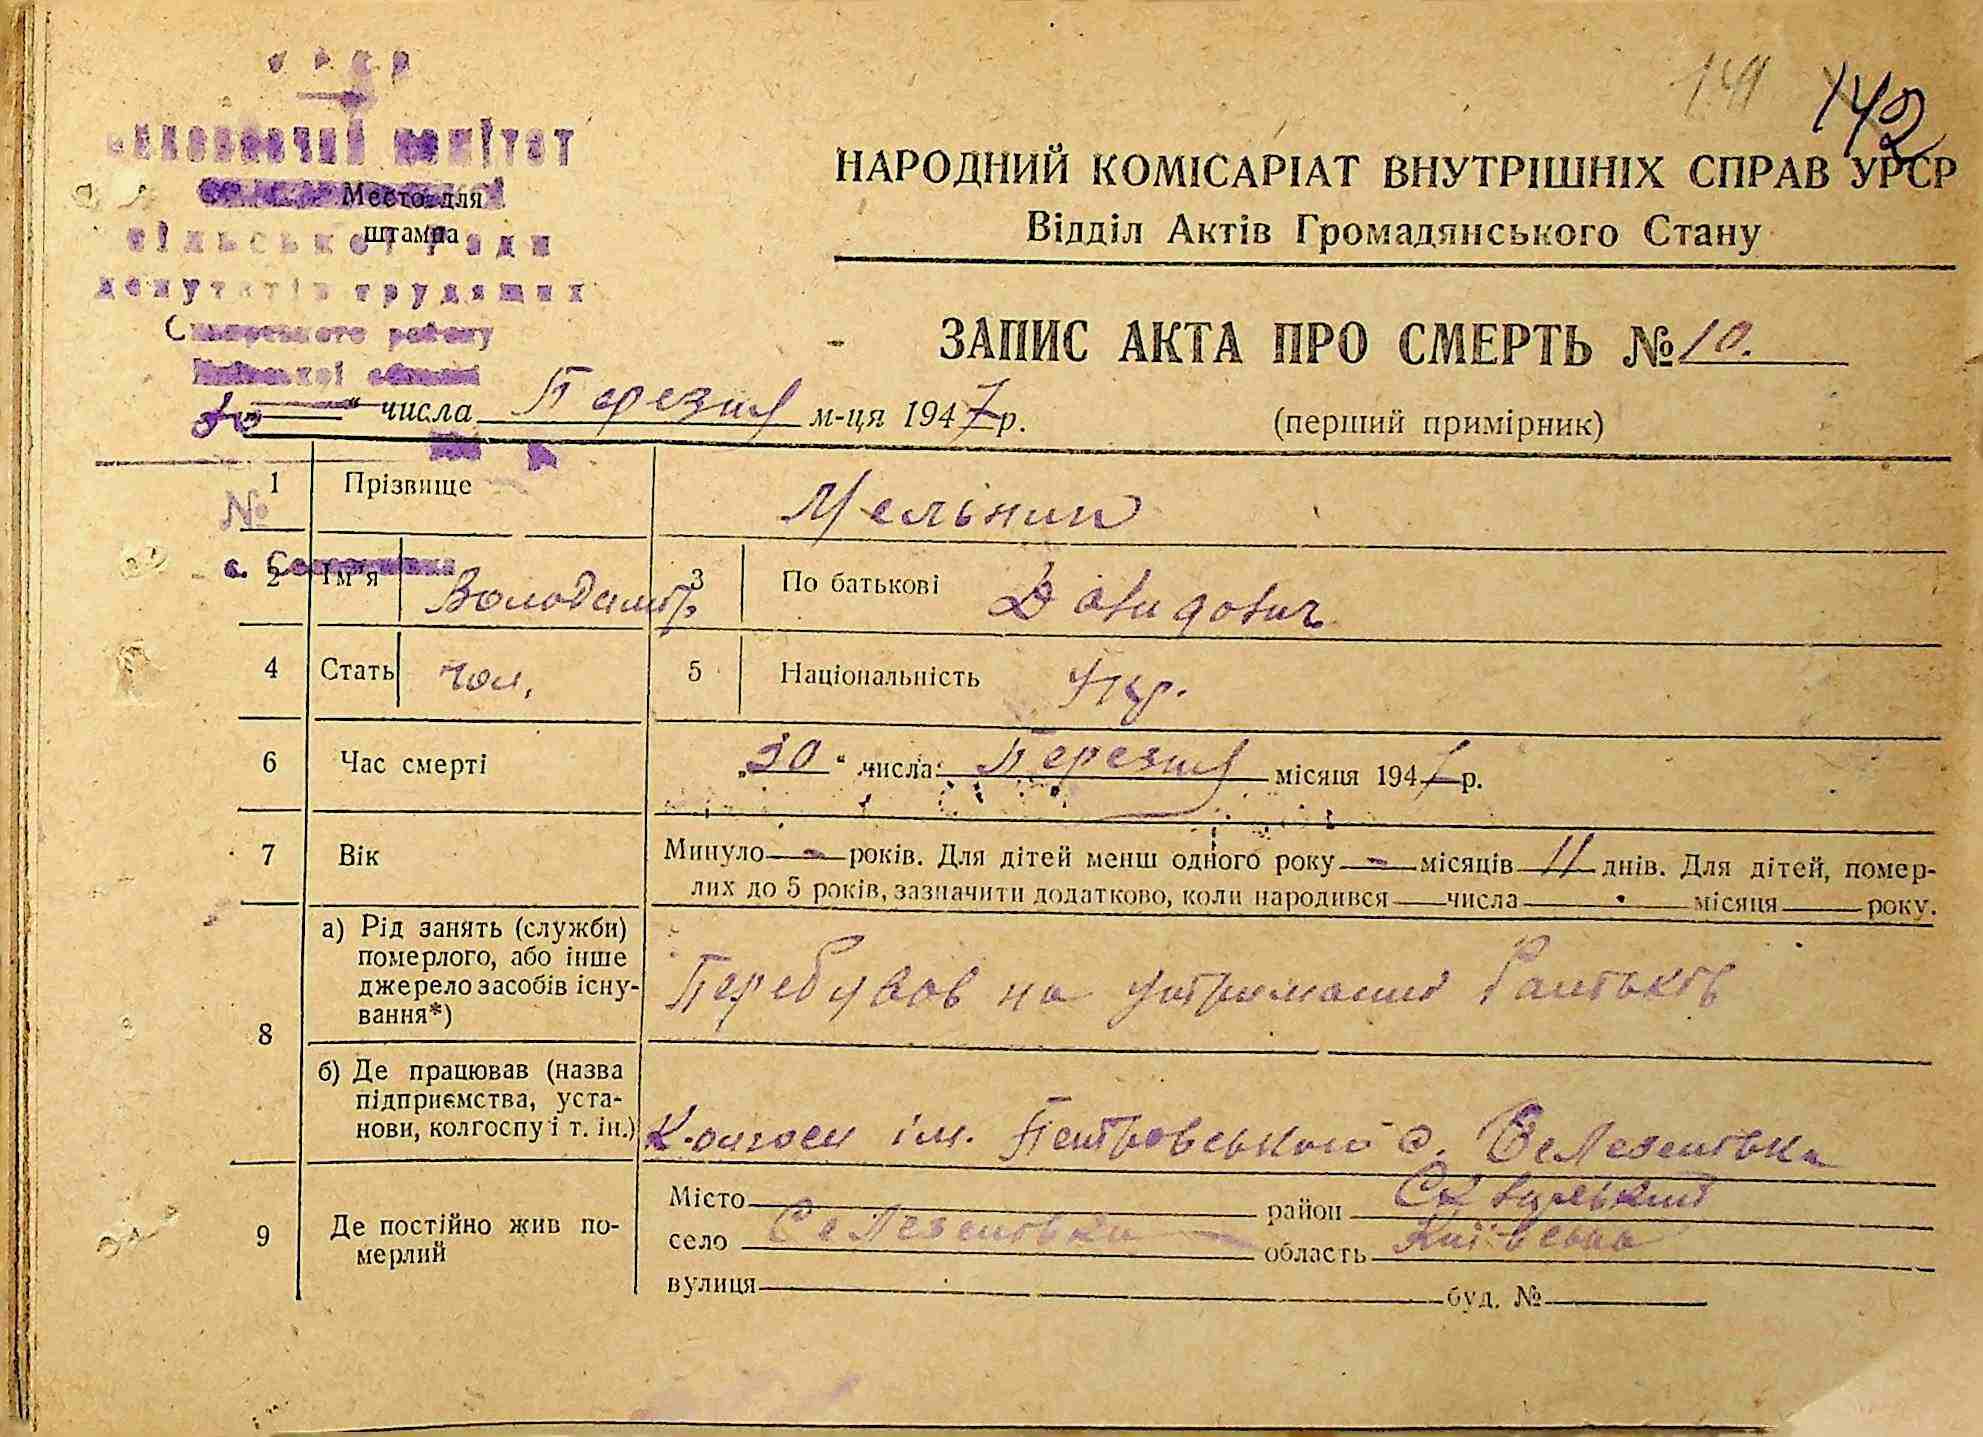 УРСР
виконавчий комітет
Место для
штампа
сільської ради
депутатів трудящих
Сквирського району
Київської області
141 142
НАРОДНИЙ КОМІСАРІАТ ВНУТРІШНІХ СПРАВ УРСР
Відділ Актів Громадянського Стану
ЗАПИС АКТА ПРО СМЕРТЬ № 10.
30 " числа Березня м-ця 1947 р.
(перший примірник)
№
1 Прізвище Мельник
с. Селезенівка
2 Ім'я Володимир 3 По батькові Давидович
4 Стать чол. 5 Національність Укр.
6 Час смерті „30" числа Березня місяця 1947 р.
7 Вік Минуло — років. Для дітей менш одного року — місяців 11 днів. Для дітей, помер-
лих до 5 років, зазначити додатково, коли народився числа місяця року.
8 а) Рід занять (служби)
померлого, або інше
джерело засобів існу-
вання*)
Перебував на утриманні батьків
б) Де працював (назва
підприємства, уста-
нови, колгоспу і т. ін.)
Колгосп ім. Петровського с. Селезенівка
9 Де постійно жив по-
мерлий
Місто район Сквирський
село Селезенівка область Київська
вулиця буд. №